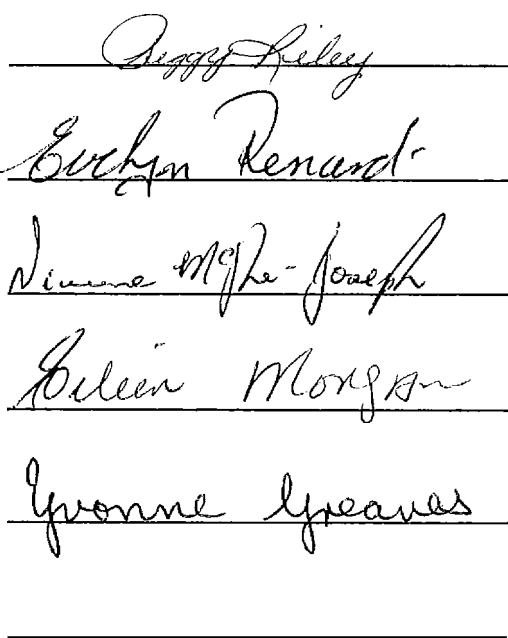 Peggy Riley
Evelyn Renard
Joseph
Eileen Morgan
Yvonne Greaves